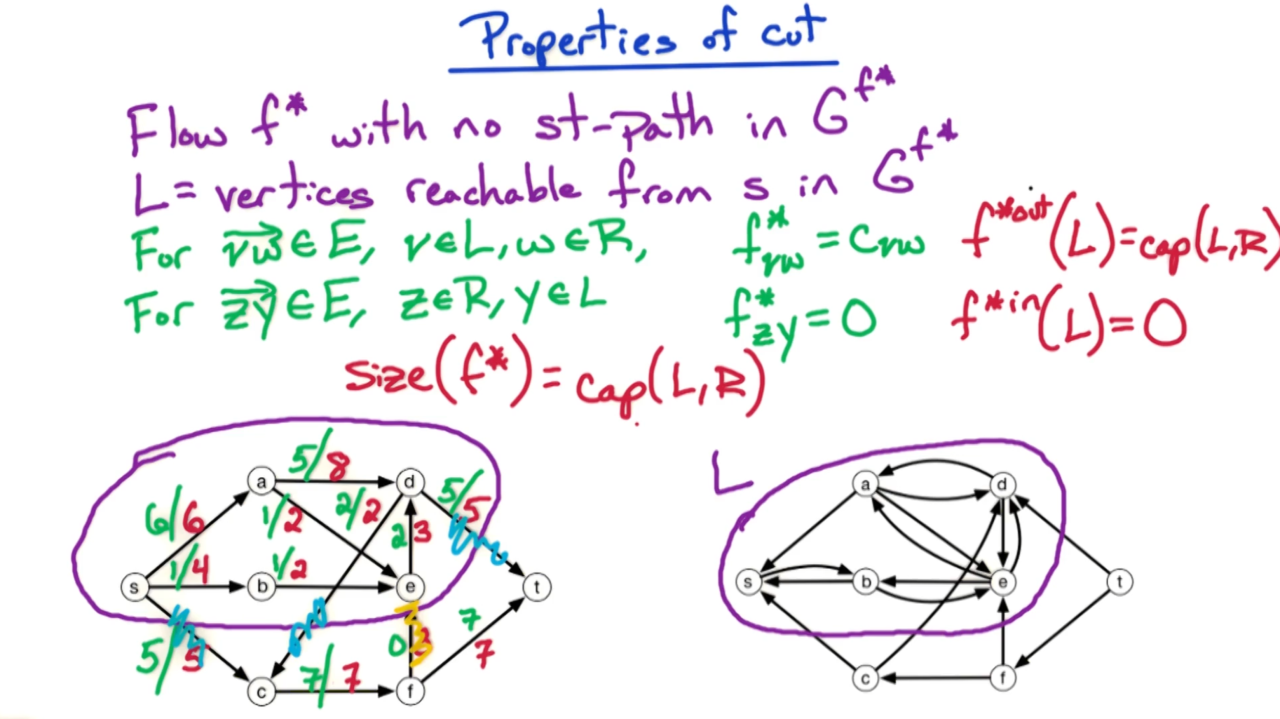 Properties of cut
Flow f* with no st-path in G^f*
L = vertices reachable from s in G^f*
For vw ∈ E, v∈L, w∈R, f*vw = Cvw f*out(L) = cap(L,R)
For zy ∈ E, z∈R, y∈L f*zy = 0 f*in(L) = 0
Size(f*) = cap(L,R)
5/8
a d
6/6 1/2 2/2 2 3 5/5
1/4 1/2
s b e t
5/5 0 3 7
7/7 7
c f
L
a d
s b e t
c f